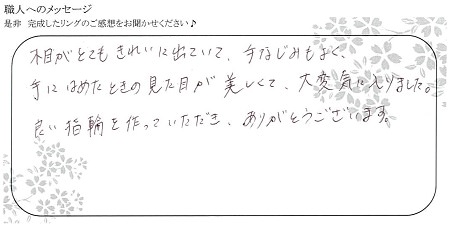 職人へのメッセージ
是非 完成したリングのご感想をお聞かせください♪
木目がとてもきれいに出ていて、手なじみもよく、
手にはめたときの見た目が美しくて、大変気に入りました。
良い指輪を作っていただき、ありがとうございます。